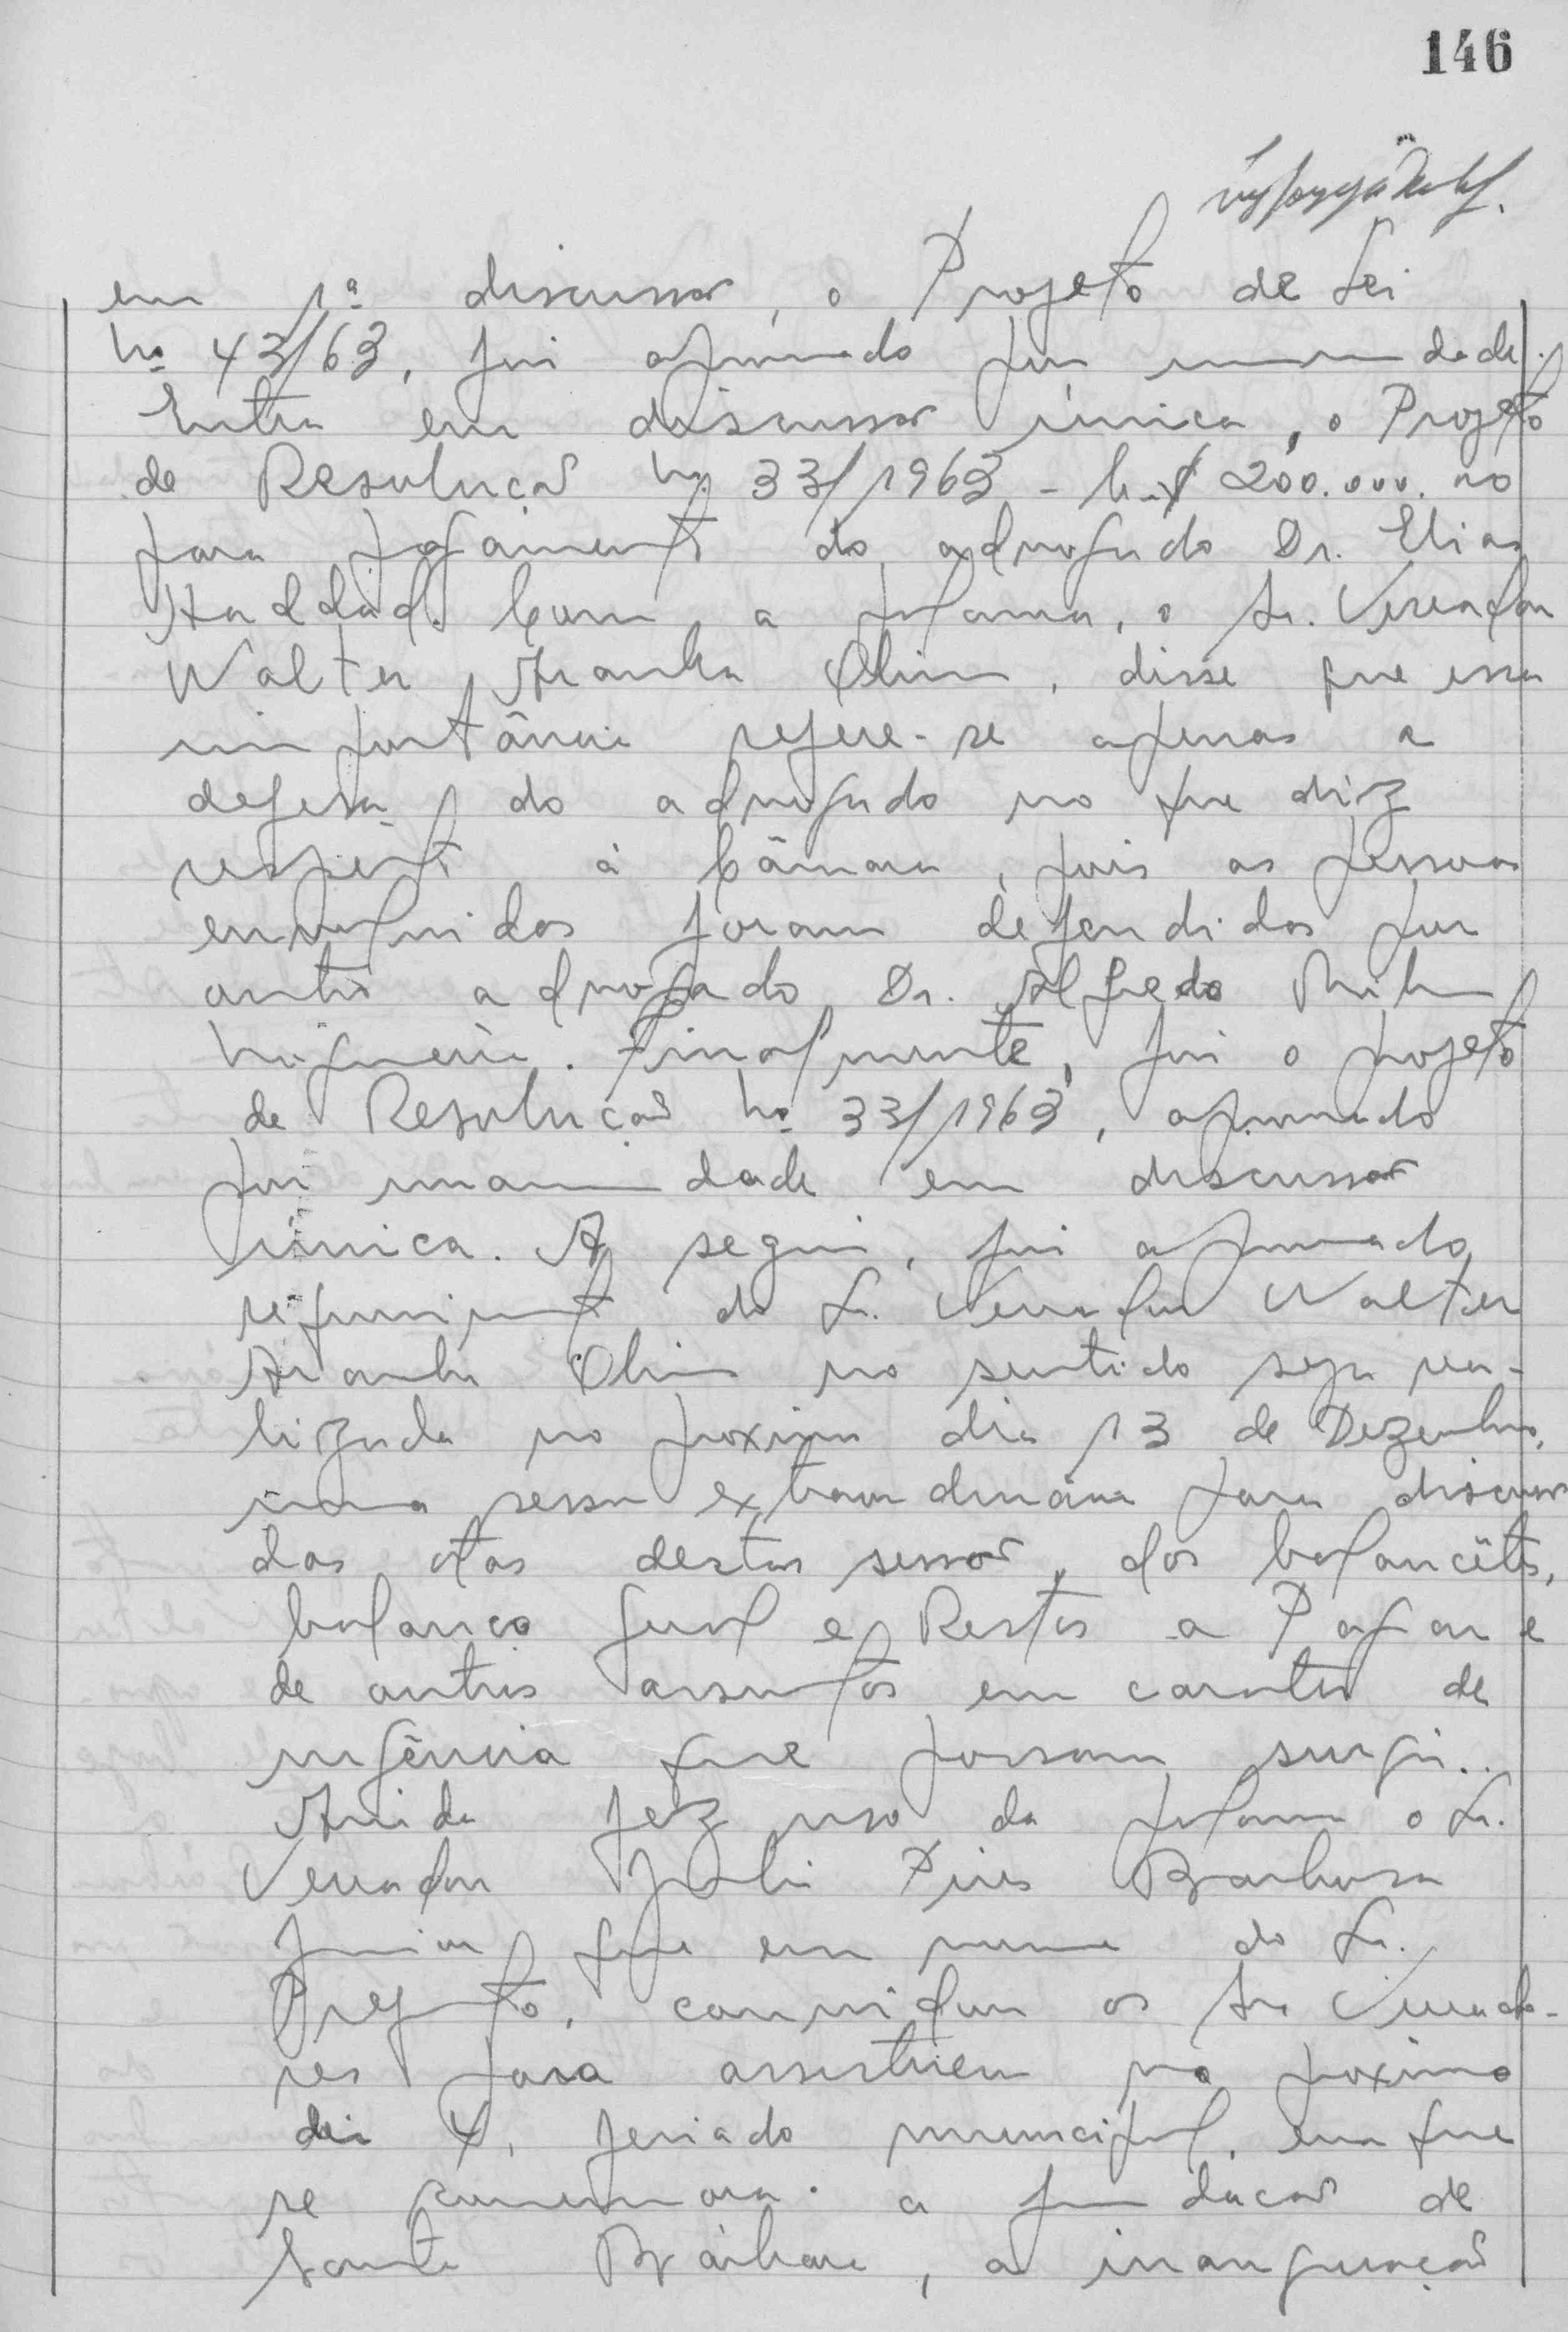 146
em 1ª discussão, o Projeto de Lei
nº 43/63, foi aprovado por unanimidade.
Entra em discussão única, o Projeto
de Resolução nº 33/1963 - Cr$ 200.000,00
para pagamento do advogado Dr. Elias
Haddad. Com a palavra, o Sr. Vereador
Walter Aranha Olim, disse que essa
importância refere-se apenas a
defesa do advogado no que diz
respeito à Câmara, pois as pessoas
envolvidas foram defendidas por
outro advogado Dr. Alfredo
Finalmente, foi o projeto
de Resolução nº 33/1963, aprovado
por unanimidade em discussão
única. A seguir, foi aprovado
requerimento do Sr. Vereador Walter
Aranha Olim no sentido seja rea-
lizada no proximo dia 13 de Dezembro,
uma sessão extraordinária para discussão
das atas destas sessão, dos balancêtes,
balanço geral e Restos a Pagar e
de outros assuntos em carater de
urgência que possam surgir.
Ainda fez uso da palavra o Sr.
Vereador Julio Pires Barbosa
Junior que em nome do Sr.
Prefeito, convidou os Srs Vereado-
res para assistirem no proximo
dia 4, feriado municipal, em que
se comemora a fundação de
Santa Bárbara, a inauguração